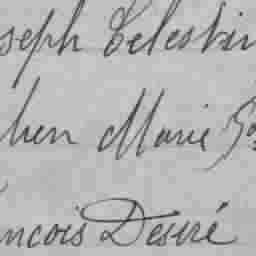 seph Celestin
hen Marie Jos
ncois Desiré